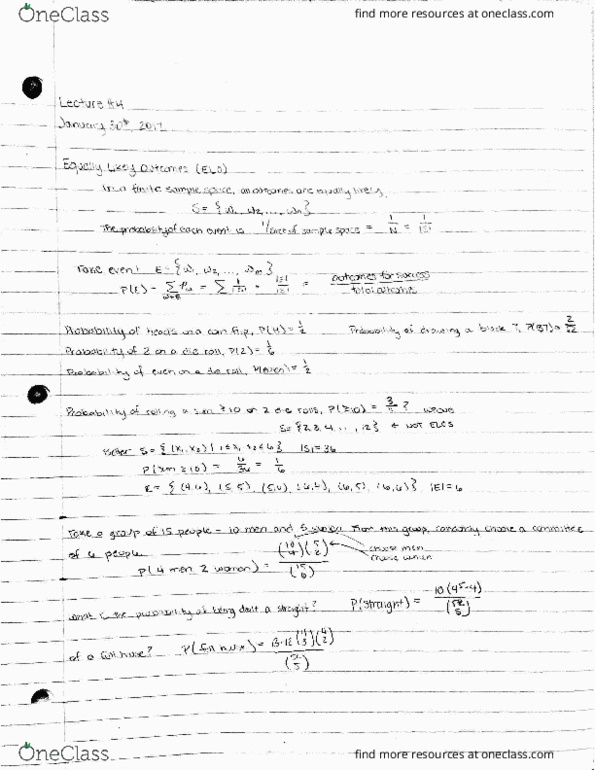 OneClass
find more resources at oneclass.com
Lecture #4
January 30th, 2017
Equally Likely Outcomes (ELO)
In a finite sample space, all outcomes are equally likely,
S = {w₁, w₂, ..., wₙ}
The probability of each event is 1/size of sample space = 1/N = 1/|S|
Take event E = {w₁, w₂, ..., wₘ}
P(E) = Σ Pw = Σ 1/|S| = |E|/|S| = outcomes for success / total outcome
Probability of heads on a coin flip, P(H) = 1/2 Probability of drawing a black 7, P(B7) = 2/52
Probability of 2 on a die roll, P(2) = 1/6
Probability of even on a die roll, P(even) = 1/2
Probability of rolling a sum ≥10 on 2 die rolls, P(≥10) = 3/11 ? WRONG
E = {2, 3, 4, ..., 12} ← NOT ELOS
Better S = {(x₁, x₂) | 1≤x₁, x₂≤6} |S| = 36
P(sum ≥10) = 6/36 = 1/6
E = {(4,6), (5,5), (5,6), (6,4), (6,5), (6,6)} |E| = 6
Take a group of 15 people - 10 men and 5 women. From this group, randomly choose a committee
of 6 people.
P(4 men 2 women) = (10 4)(5 2) / (15 6) ← choose men
choose which
What is the probability of being dealt a straight? P(straight) = 10(4⁵-4) / (52 5)
of a full house? P(full house) = 13·12(4 3)(4 2) / (52 5)
OneClass
find more resources at oneclass.com